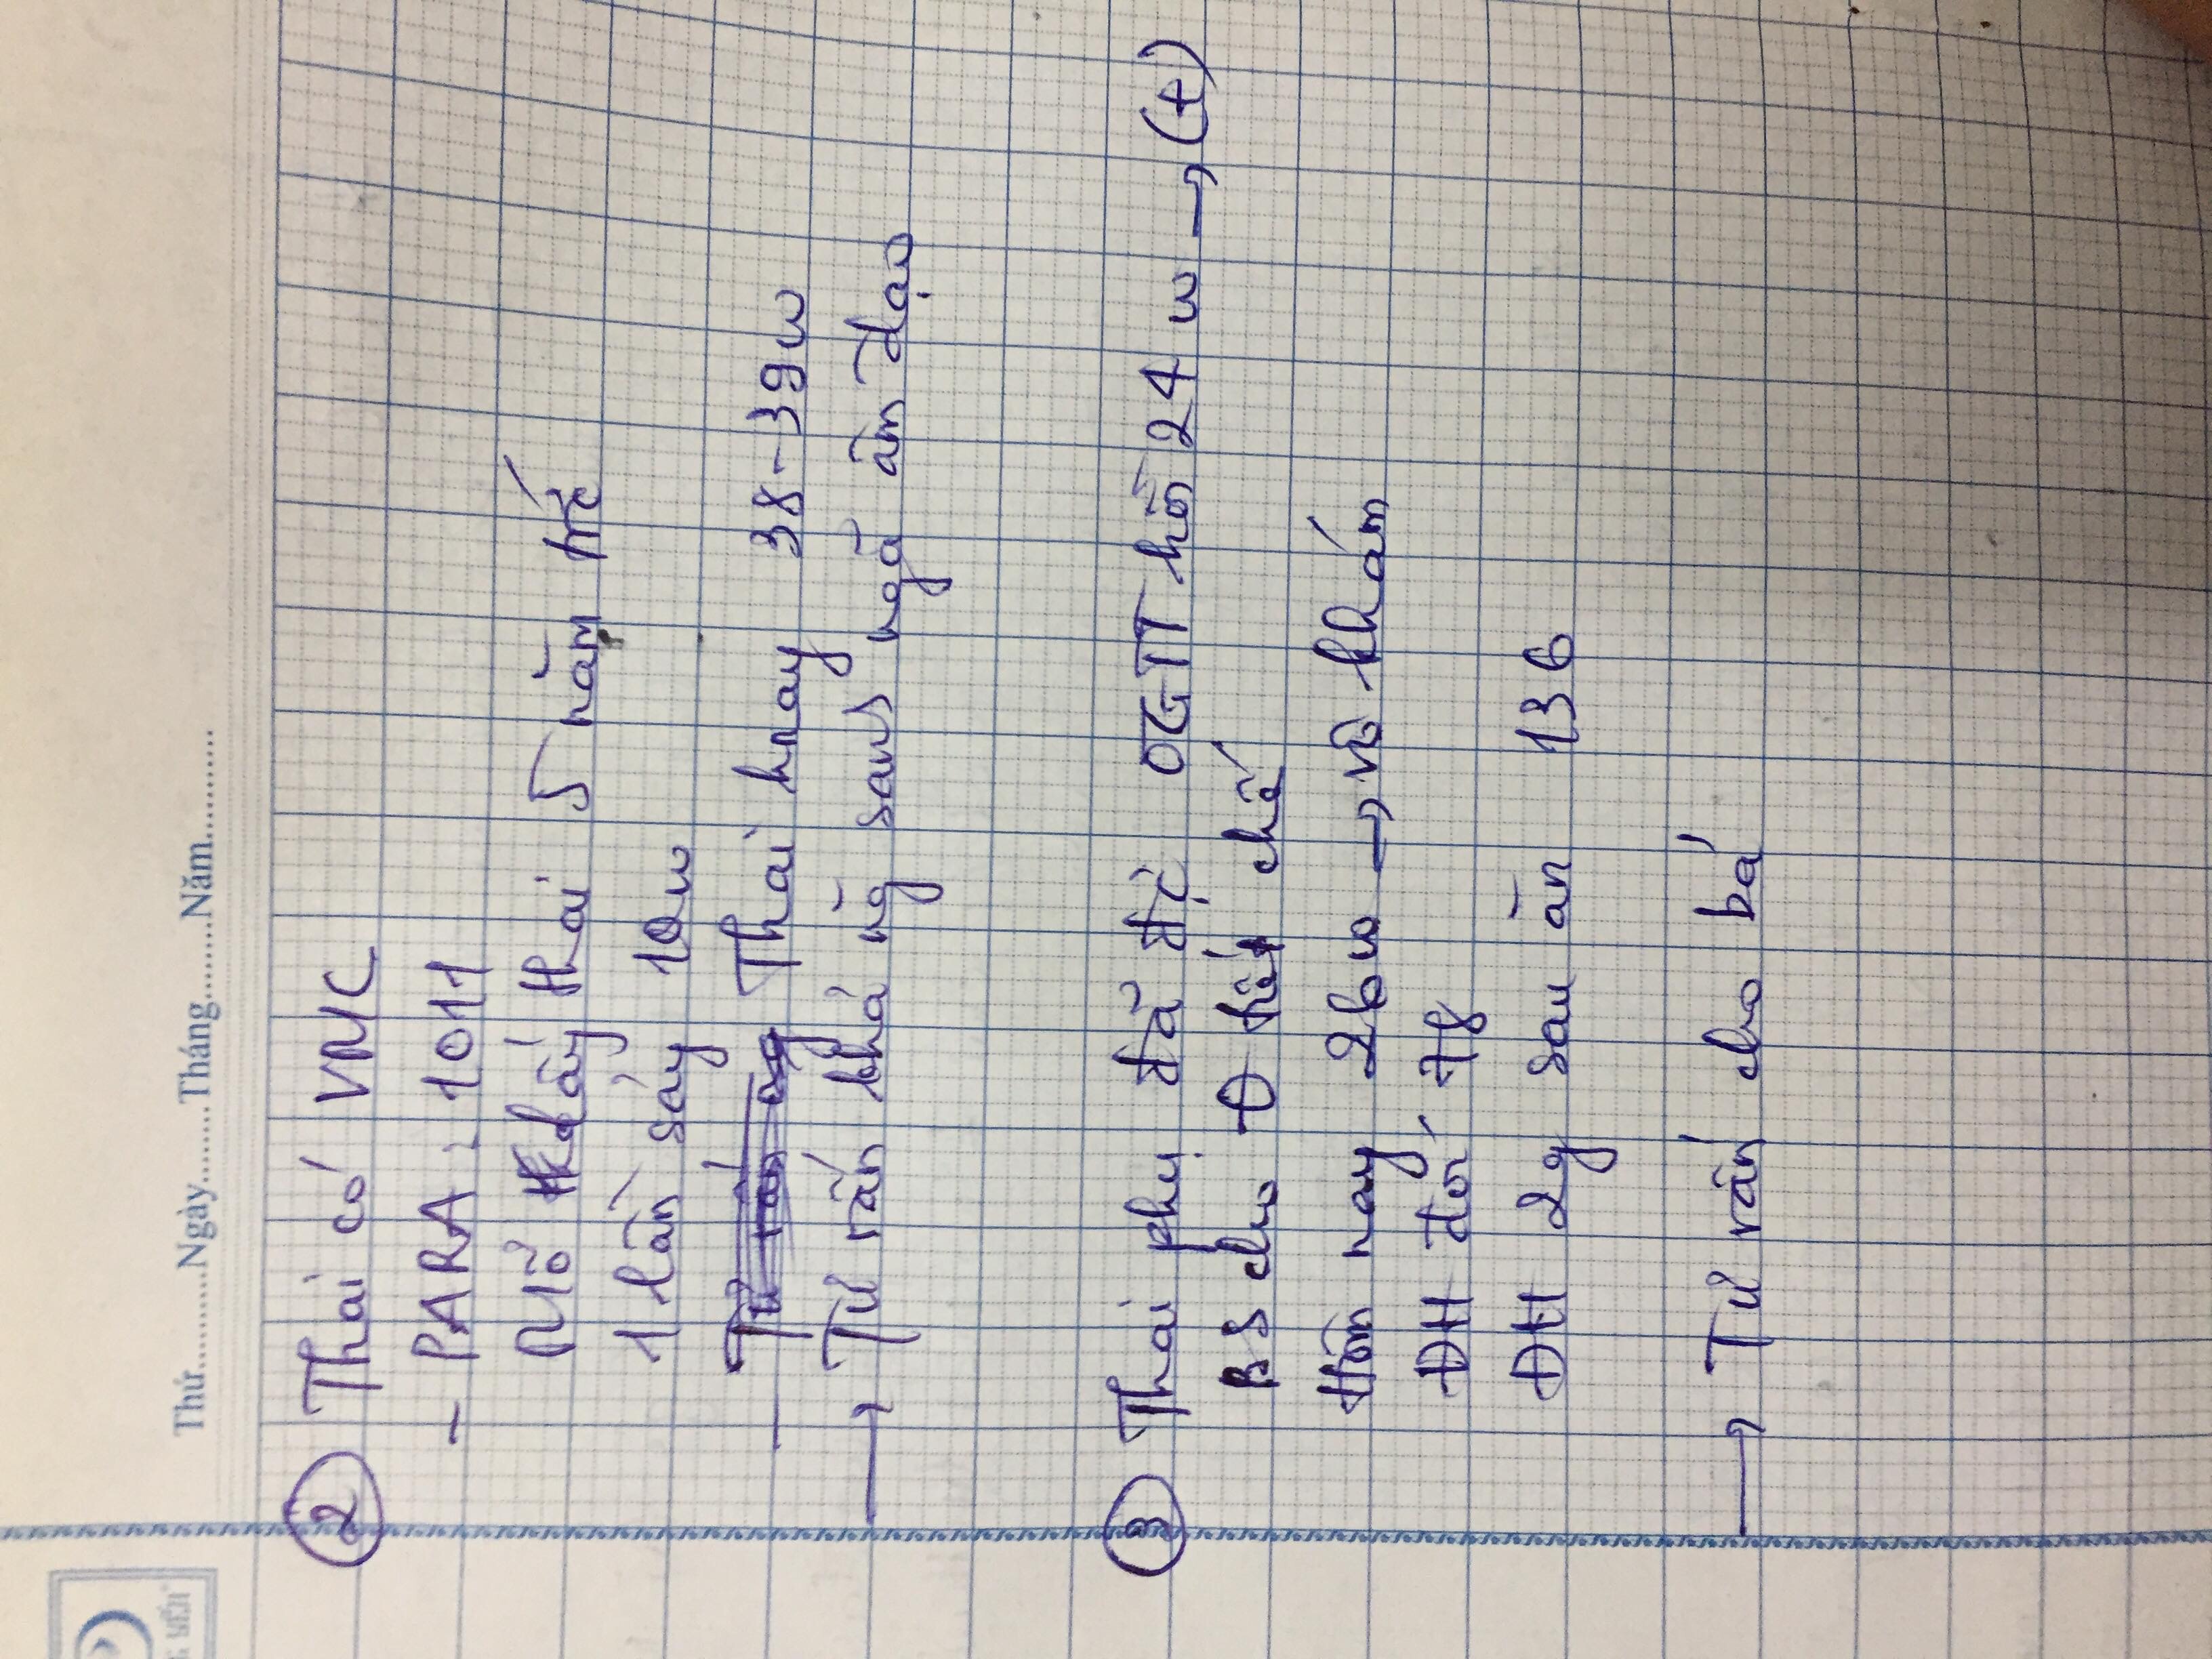 Thứ..........Ngày........Tháng........Năm...........
② Thai có VMC
- PARA : 1011
Mổ lấy thai 5 năm trc
1 lần sảy 10w
- Thai hnay 38-39w
→ Tư vấn khả ng sanh ngã âm đạo
③ Thai phụ đã đc OGTT hồi 24 w → (+)
BS cho Θ tiết chế
Hôm nay 26w → vô khám
ĐH đói 78
ĐH 2g sau ăn 136
→ Tư vấn cho bà